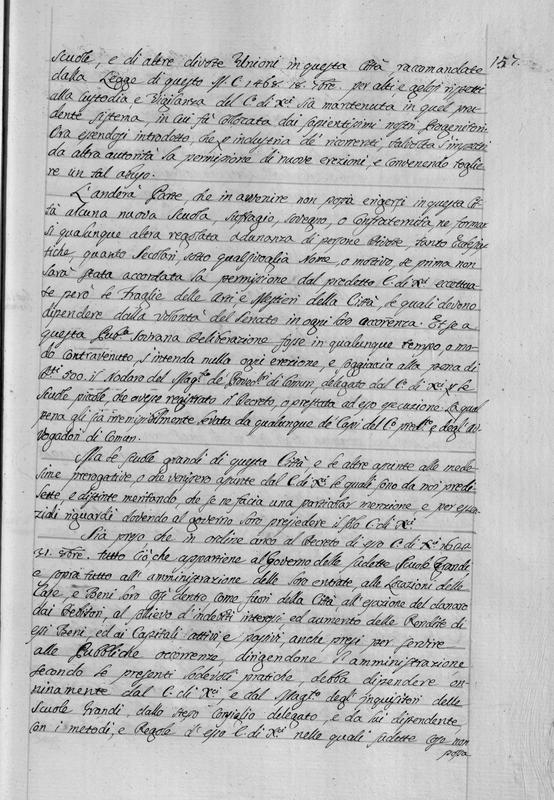 157.
Scuole, e di altre divote Unioni in questa Città, raccomandate
dalla Legge di questo M. C. 1468. 18. 7bre. per alti e gelosi rispetti
alla Custodia e Vigilanza del C. di X.ci sia mantenuta in quel pru-
dente sistema, in cui fù collocata dai sapientissimi nostri Progenitori.
Ora essendosi introdotto, che industria de' ricorrenti talvolta s'impetri
da altra autorità la permissione di nuove erezioni, e convenendo toglie-
re un tal abuso.
L'anderà Parte, che in avvenire non possa erigersi in questa Cit-
tà alcuna nuova Scuola, suffragio, sovegno, o Confraternita, ne formar-
si qualunque altra regolata adunanza di persone divote, tanto Ecclesias-
tiche, quanto Secolari, sotto qualsivoglia Nome, o motivo, se prima non
sarà stata accordata la permissione dal predetto C. di X.ci eccettua-
te però le Fraglie delle Arti e Mestieri della Città, le quali devono
dipendere dalla volontà del Senato in ogni loro occorrenza. Et se a
questa Pub.ca sovrana Deliberazione fosse in qualunque tempo, o mo-
do contravenuto, s'intenda nulla ogni erezione, e soggiaccia alla pena di
500. il Nodaro del Mag.to de' Proved.ri di Comun, delegato dal C. di X.ci le
Scuole picole, che avesse registrato il Decreto, o prestata ad esso esecuzione. La qual
pena gli sia irremisibilmente levata da qualunque de Capi del C.o pred.o e degli Av-
vogadori di Comun.
Ma le Scuole grandi di questa Città e le altre assunte alle mede-
sime prerogative, o che venissero assunte dal C. di X.ci le quali sono da noi predi-
lette, e distinte meritando, che se ne faccia una particolar menzione, e per essen-
ziali riguardi dovendo al governo loro presiedere il C. di X.ci
Sia preso che in ordine anco al Decreto di esso C. di X.ci
31. 8bre. tutto ciò, che appartiene al Governo delle sudette Scuole Grandi,
e sopra tutto all'amministrazione delle loro entrate, alle Locazioni delle
Case, e Beni loro così dentro come fuori della Città all'esazione del danaro
dai Debitori, al sollievo d'indebiti interessi ed aumento delle Rendite di
essi Beni, ed ai Capitali attivi e passivi, anche presi per servire
alle Pubbliche occorrenze, dirigendone l'amministrazione
secondo le presenti lodevoli pratiche, debba dipendere on-
ninamente dal C. di X.ci e dal Mag.to degl'Inquisitori delle
Scuole Grandi, dallo stesso Consiglio delegato, e da lui dipendente,
con i metodi, e Regole d'esso C. di X.ci nelle quali sudette Cose non
possa